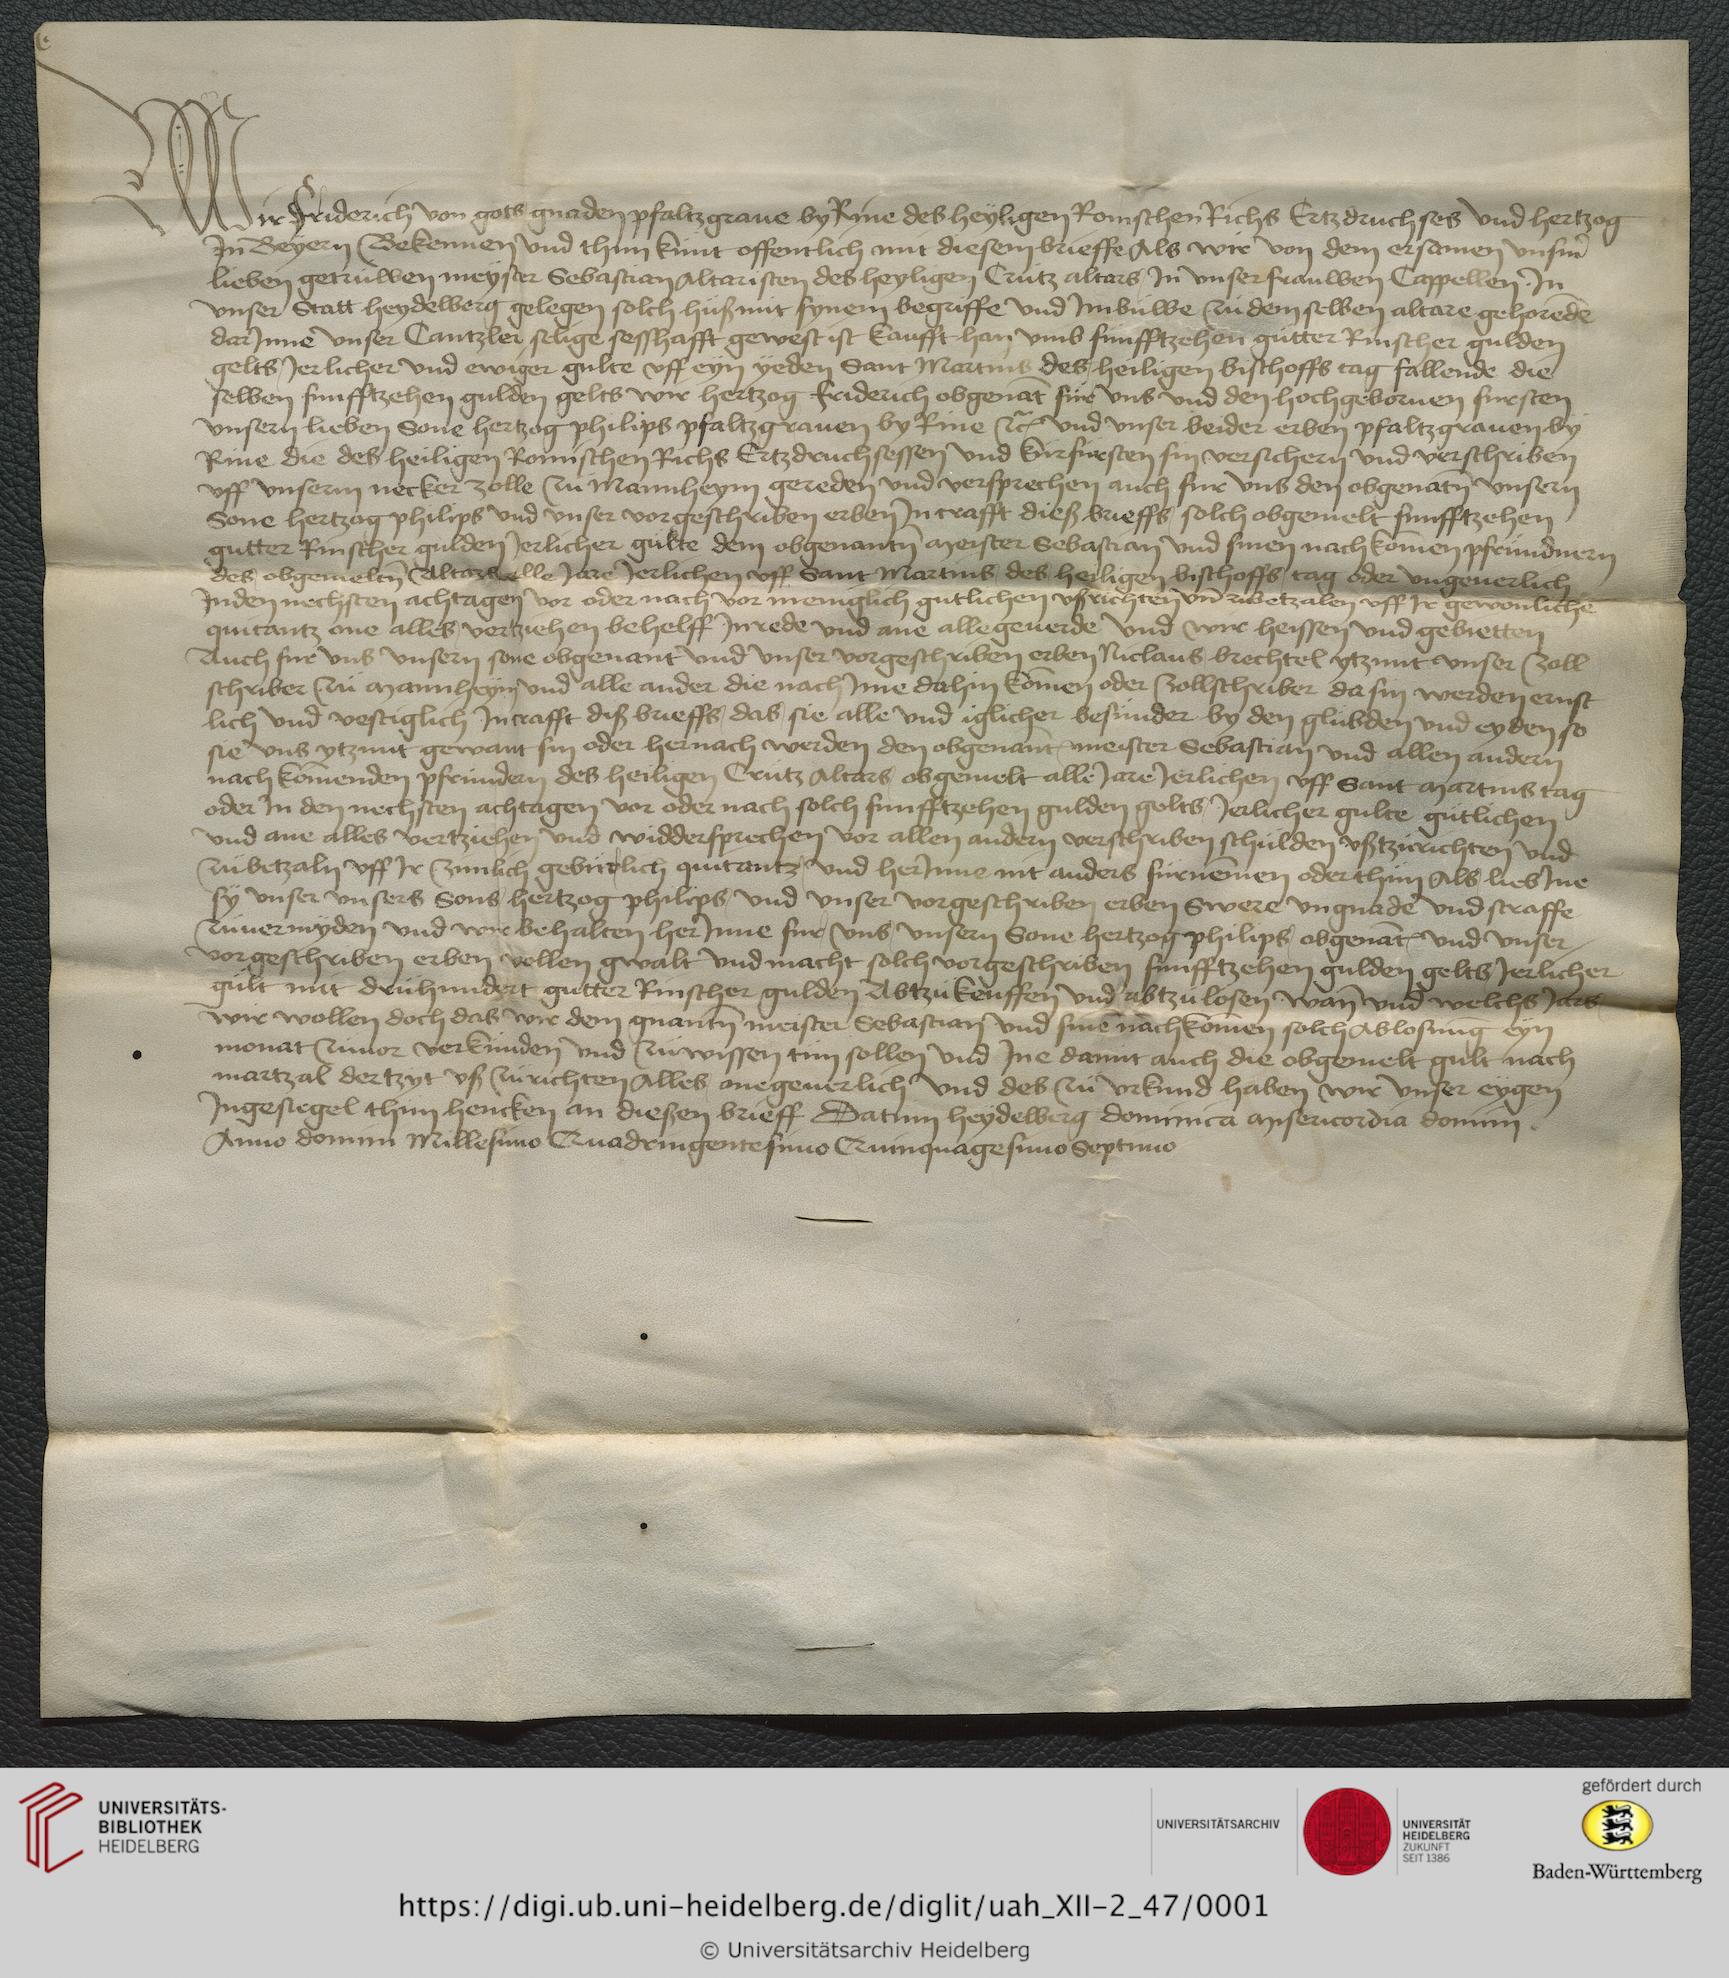 Wir Friderich von gots gnaden pfaltzgraue by Rine des heyligen Romschen Richs Ertzdruchses vnd hertzog
In Beyern Bekennen vnd thun kunt offentlich mit diesem brieffe Als wir von dem ersamen vnserm
lieben getruwen meyster Sebastian Altaristen des heyligen Crutz altars In vnser frauwen Cappellen In
vnser Statt heydelberg gelegen solch huß mit synem begriffe vnd Inbuwe zu dem selben altare gehorende
dar Inne vnser Cantzler selige seßhafft gewest ist kaufft han vmb funfftzehen gutter Rinscher gulden
gelts Jerlicher vnd ewiger gulte vff eyn yeden Sant Martins des heiligen bischoffs tag fallende die
selben funfftzehen gulden gelts wir hertzog Friderich obgenāt fur vns vnd den hochgebornen fursten
vnsern lieben Sone hertzog philips pfaltzgrauen by Rine vnd vnser beider erben pfaltzgrauen by
Rine die des heiligen Romischen Richs Ertzdruchsessen vnd kurfursten sin versichern vnd verschriben
vff vnserm necker zolle zu Mannheym gereden vnd versprechen auch fur vns den obgenatn̄ vnsern
Sone hertzog philips vnd vnser vorgeschriben erben In crafft dieß brieffs solch obgemelt funfftzehen
gutter Rinscher gulden Jerlicher gulte dem obgenantn̄ meister Sebastian vnd sinen nachkōmen pfrundnern
des obgemeltn̄ Altars alle Jare Jerlichen vff Sant Martins des heiligen bischoffs tag oder vngeuerlich
In den nechsten achtagen vor oder nach vor meniglich gutlichen vßrichten vn̄ zubetzalen vff Ir gewonliche
quitantz one alles vertziehen behelff Inrede vnd ane alle geuerde vnd wir heissen vnd gebietten
Auch fur vns vnsern sone obgenant vnd vnser vorgeschriben erben Niclaus brechtel ytzunt vnser Zoll
schriber zu Mannheym vnd alle ander die nach Ime dahin kōmen oder Zollschriber da sin werden ernst
lich vnd vestiglich In crafft diß brieffs das sie alle vnd iglicher besunder by den glubden vnd eyden so
sie vns ytzunt gewant sin oder hernach werden den obgenant meister Sebastian vnd allen andern
nachkōmenden pfrundern des heiligen Crutz Altars obgemelt alle Jare Jerlichen vff Sant Martins tag
oder In den nechsten achtagen vor oder nach solch funfftzehen gulden gelts Jerlicher gulte gutlichen
vnd ane alles vertziehen vnd widdersprechen vor allen andern verschriben schulden vßtzurichten vnd
zubetzaln vff Ir zimlich geburlich quitantz vnd her Inne nit anders furnēmen oder thun Als lieb Ine
sy vnser vnsers Sons hertzog philips vnd vnser vorgeschriben erben Swere vngnade vnd straffe
zuuermyden vnd wir behalten her Inne fur vns vnsern Sone hertzog philips obgenāt vnd vnser
vorgeschriben erben vollen gwalt vnd macht solch vorgeschriben funfftzehen gulden gelts Jerlicher
gult mit druhundert gutter Rinscher gulden Abtzukeuffen vnd abtzulosen wan̄ vnd welchs Jars
wir wollen doch das wir dem gnantn̄ meister Sebastian vnd sinē nachkomen solch Ablosung eyn
monat zuuor verkunden vnd zu wissen tun sollen vnd Ine damit auch die obgemelt gult nach
martzal der tzyt vß zurichten Alles one geuerlich vnd des zu vrkund haben wir vnser eygen
Ingesiegel thun hencken an dießen brieff Datum heydelberg dominica Misericordia domini
Anno domini Millesimo Quadringentesimo Quinquagesimo Septimo
UNIVERSITÄTS-
BIBLIOTHEK
HEIDELBERG
UNIVERSITÄTSARCHIV
UNIVERSITÄT
HEIDELBERG
ZUKUNFT
SEIT 1386
gefördert durch
Baden-Württemberg
https://digi.ub.uni-heidelberg.de/diglit/uah_XII-2_47/0001
© Universitätsarchiv Heidelberg